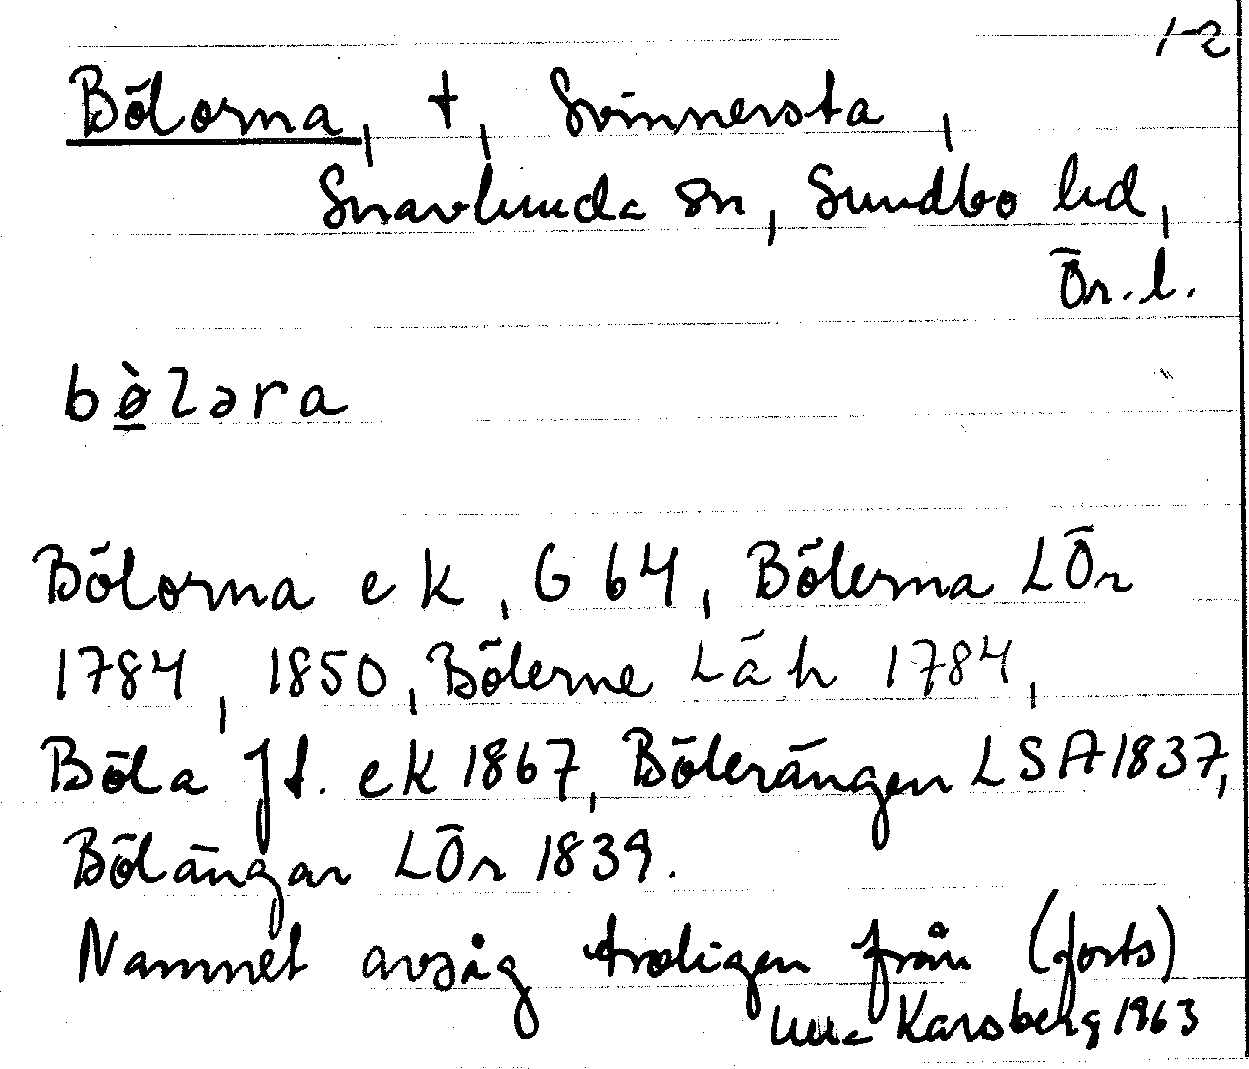 1-2
Bölorna, †, Svinnersta,
Snavlunda sn, Sundbo hd,
Ör. l.
bø̀ləra
Bölorna ek, G 64, Bölerna LÖr
1784, 1850, Bölerne Låh 1784,
Böla jt. ek 1867, Bölerängen LSA 1837,
Bölängar LÖr 1839.
Namnet avsåg troligen från (forts)
Karsberg 1963